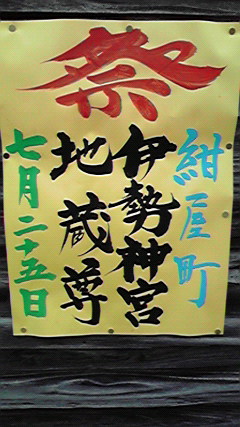 祭
紺屋町
伊勢神宮
地蔵尊
七月二十五日